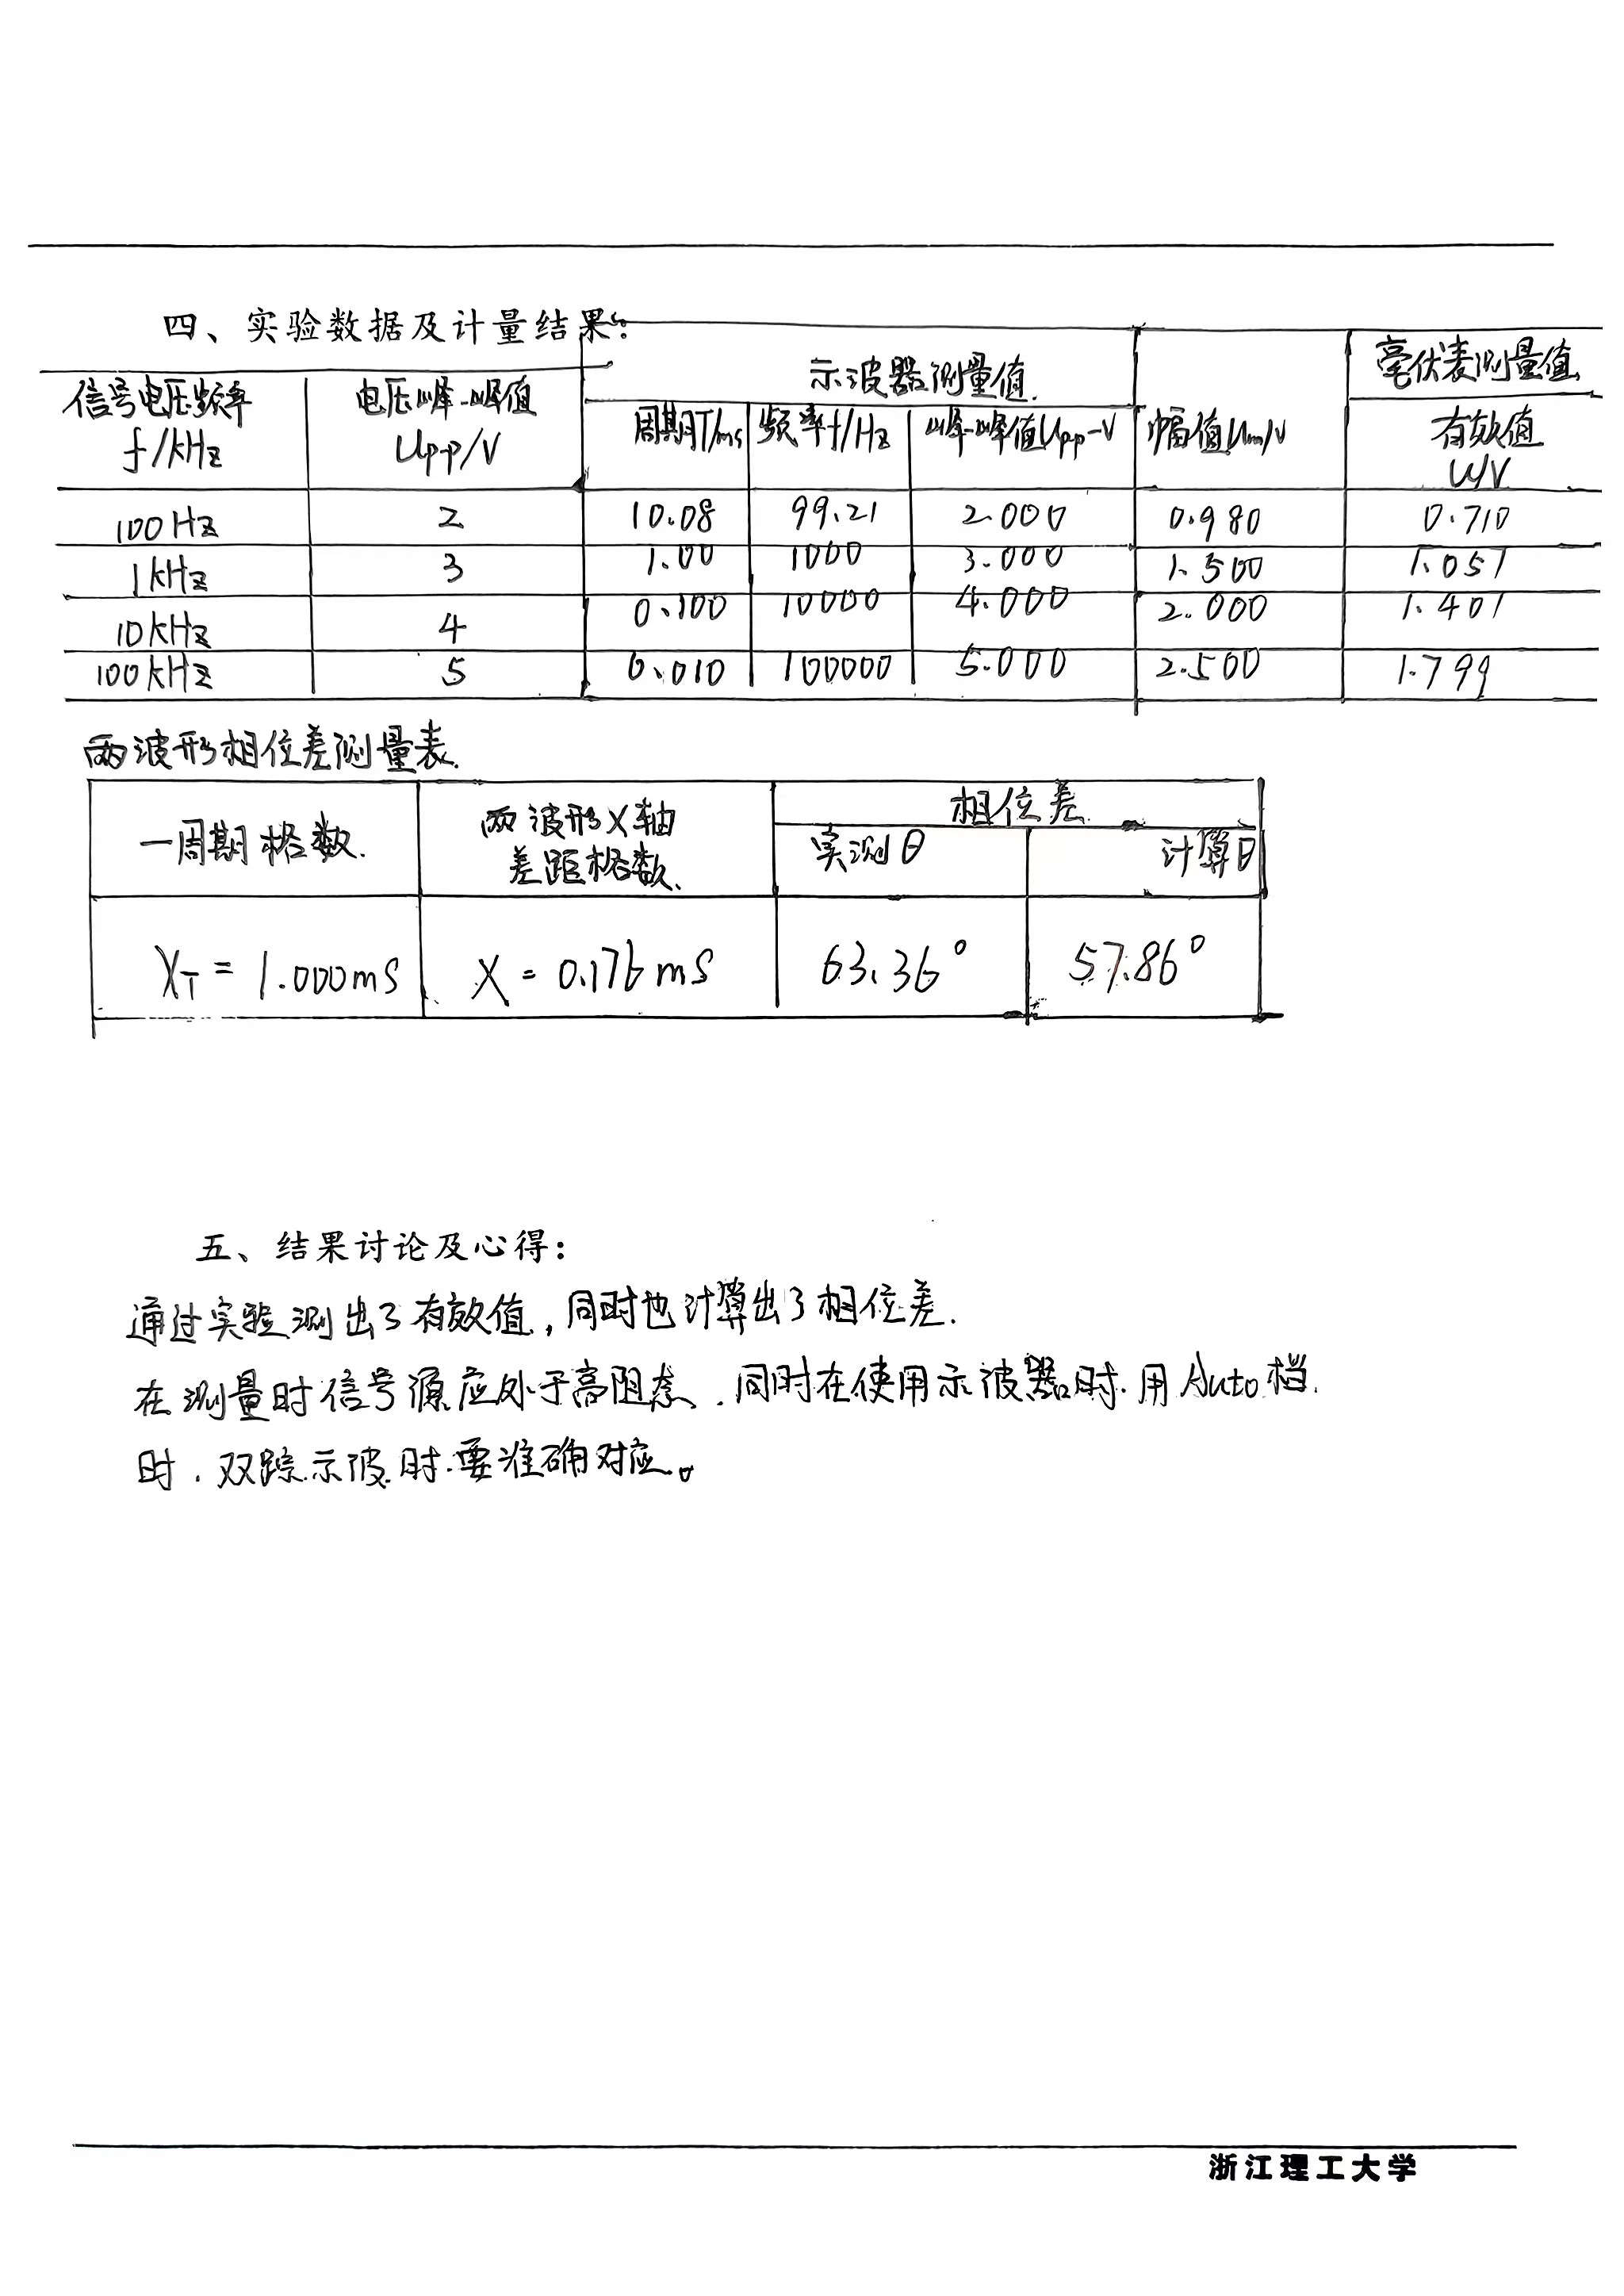 四、实验数据及计量结果:
示波器测量值 毫伏表测量值
信号电压频率 电压峰-峰值 周期T/ms 频率f/Hz 峰-峰值Up-p-V 幅值Um/V 有效值
f/kHz Up-p/V U/V
100Hz 2 10.08 99.21 2.000 0.980 0.710
1kHz 3 1.00 1000 3.000 1.500 1.051
10kHz 4 0.100 10000 4.000 2.000 1.401
100kHz 5 0.010 100000 5.000 2.500 1.799
两波形相位差测量表.
一周期格数. 两波形X轴 相位差
差距格数. 实测θ 计算θ
XT = 1.000mS X = 0.176mS 63.36° 57.86°
五、结果讨论及心得:
通过实验测出了有效值,同时也计算出了相位差.
在测量时信号源应处于高阻态.同时在使用示波器时.用Auto档.
时.双踪示波时要准确对应。
浙江理工大学